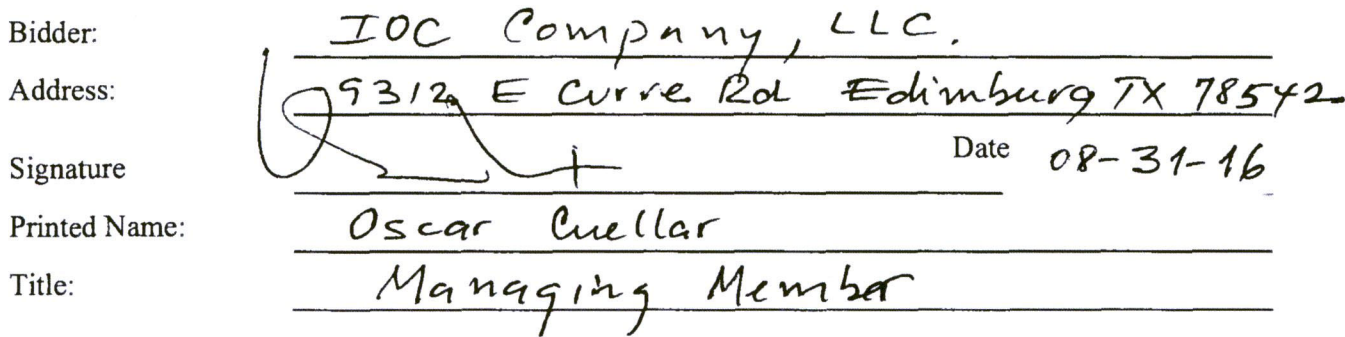 Bidder: IOC Company, LLC.
Address: 9312 E Curve Rd Edimburg TX 78542
Signature Date 08-31-16
Printed Name: Oscar Cuellar
Title: Managing Member